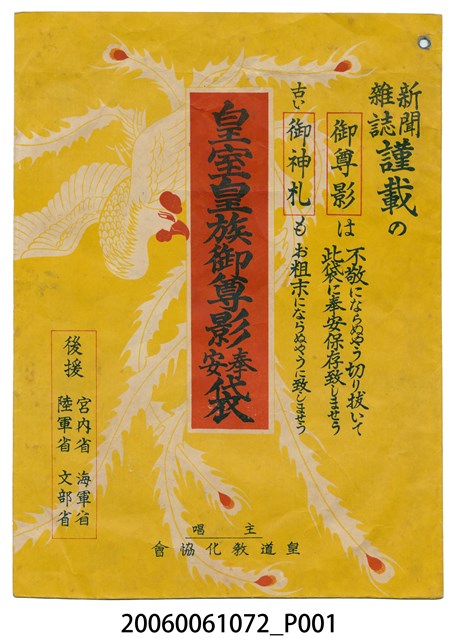 新聞
雑誌 謹載の
御尊影は 不敬にならぬやう切り抜いて
此袋に奉安保存致しませう
古い御神札も お粗末にならぬやうに致しませう
皇室皇族御尊影奉安袋
後援 宮内省 海軍省
陸軍省 文部省
主唱
皇道敎化協會
20060061072_P001